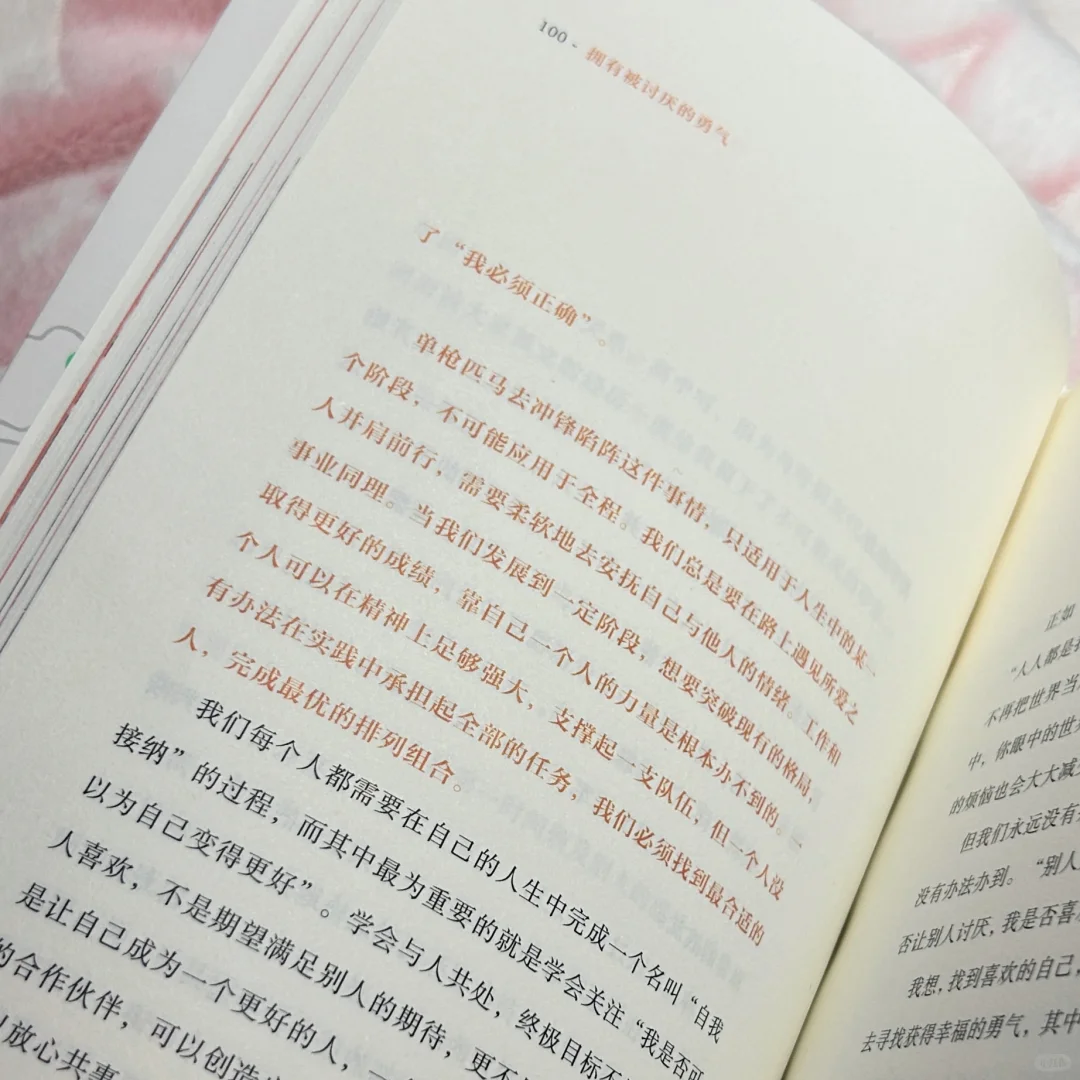 100 - 拥有被讨厌的勇气
了“我必须正确”。
单枪匹马去冲锋陷阵这件事情，只适用于人生中的某一
个阶段，不可能应用于全程。我们总是要在路上遇见所爱之
人并肩前行，需要柔软地去安抚自己与他人的情绪。工作和
事业同理。当我们发展到一定阶段，想要突破现有的格局，
取得更好的成绩，靠自己一个人的力量是根本办不到的。一
个人可以在精神上足够强大，支撑起一支队伍，但一个人没
有办法在实践中承担起全部的任务，我们必须找到最合适的
人，完成最优的排列组合。
我们每个人都需要在自己的人生中完成一个名叫“自我
接纳”的过程，而其中最为重要的就是学会关注“我是否可
以为自己变得更好”。学会与人共处，终极目标不
人喜欢，不是期望满足别人的期待，更不
是让自己成为一个更好的人，一
的合作伙伴，可以创造
放心共事
正如
“人人都是
不再把世界当
中，你眼中的世
的烦恼也会大大减
但我们永远没有
没有办法办到。“别人
否让别人讨厌，我是否喜
我想，找到喜欢的自己，
去寻找获得幸福的勇气，其中